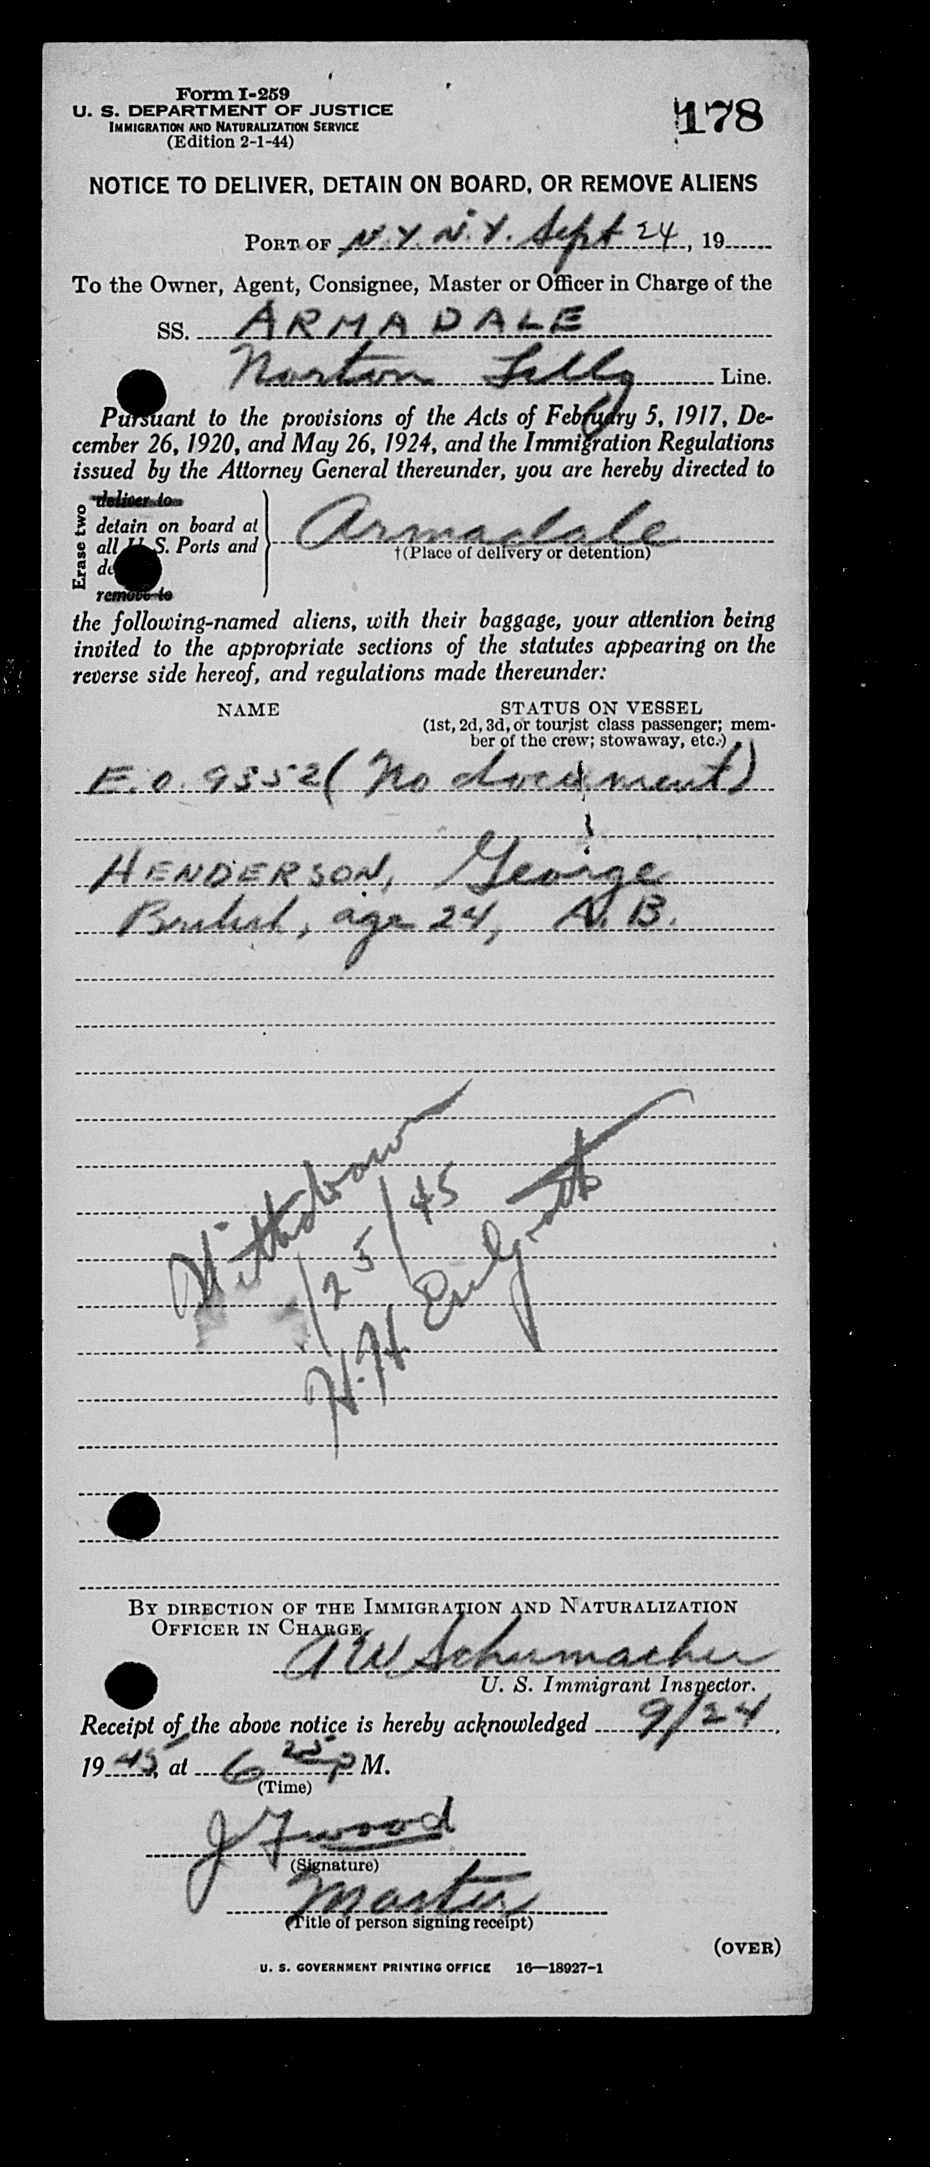 Form I-259
U. S. DEPARTMENT OF JUSTICE
IMMIGRATION AND NATURALIZATION SERVICE
(Edition 2-1-44)
178
NOTICE TO DELIVER, DETAIN ON BOARD, OR REMOVE ALIENS
PORT OF N.Y. N.Y. Sept 24, 19
To the Owner, Agent, Consignee, Master or Officer in Charge of the
SS. ARMADALE
Norton Lilly Line.
Pursuant to the provisions of the Acts of February 5, 1917, De-
cember 26, 1920, and May 26, 1924, and the Immigration Regulations
issued by the Attorney General thereunder, you are hereby directed to
Erase two
deliver to
detain on board at
all U. S. Ports and
remove to
Armadale
†(Place of delivery or detention)
the following-named aliens, with their baggage, your attention being
invited to the appropriate sections of the statutes appearing on the
reverse side hereof, and regulations made thereunder:
NAME
STATUS ON VESSEL
(1st, 2d, 3d, or tourist class passenger; mem-
ber of the crew; stowaway, etc.)
E.O. 9352 (No document)
HENDERSON, George
British, age 24, A.B.
Withdrawn
/25/45
H.H.
BY DIRECTION OF THE IMMIGRATION AND NATURALIZATION
OFFICER IN CHARGE,
A W Schumacher
U. S. Immigrant Inspector.
Receipt of the above notice is hereby acknowledged 9/24,
1945, at 6 25 P M.
(Time)
J F Wood
(Signature)
Master
(Title of person signing receipt)
(OVER)
U. S. GOVERNMENT PRINTING OFFICE 16—18927-1